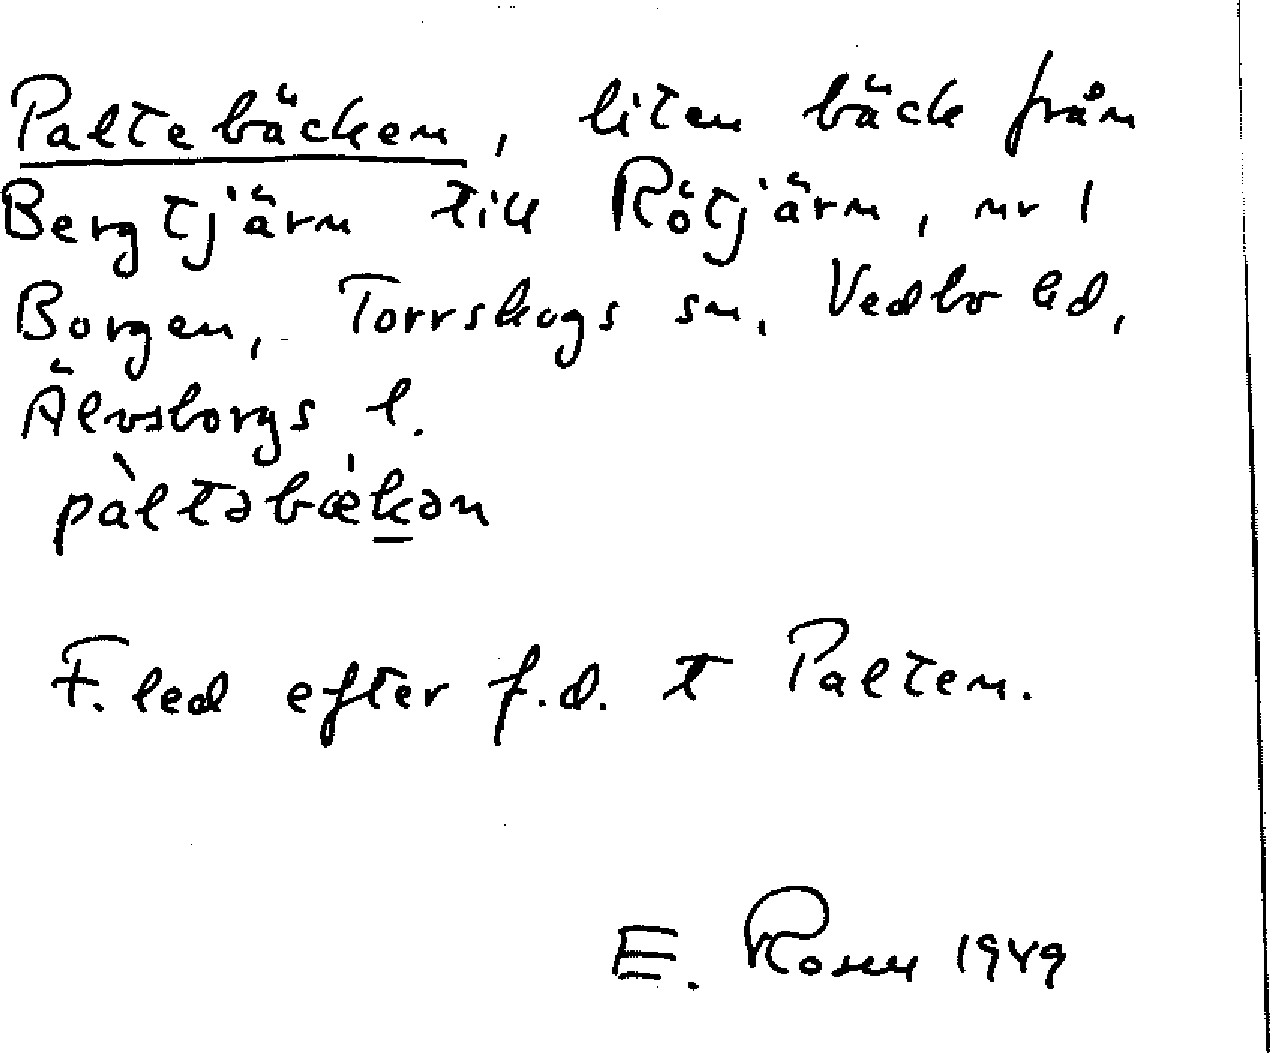 Paltebäcken, liten bäck från
Bergtjärn till Rötjärn, nr 1
Borgen, Torrskogs sn, Vedbo hd,
Älvsborgs l.
pàltəbæ̀kən
F. led efter f.d. t Palten.
E. Rosell 1949